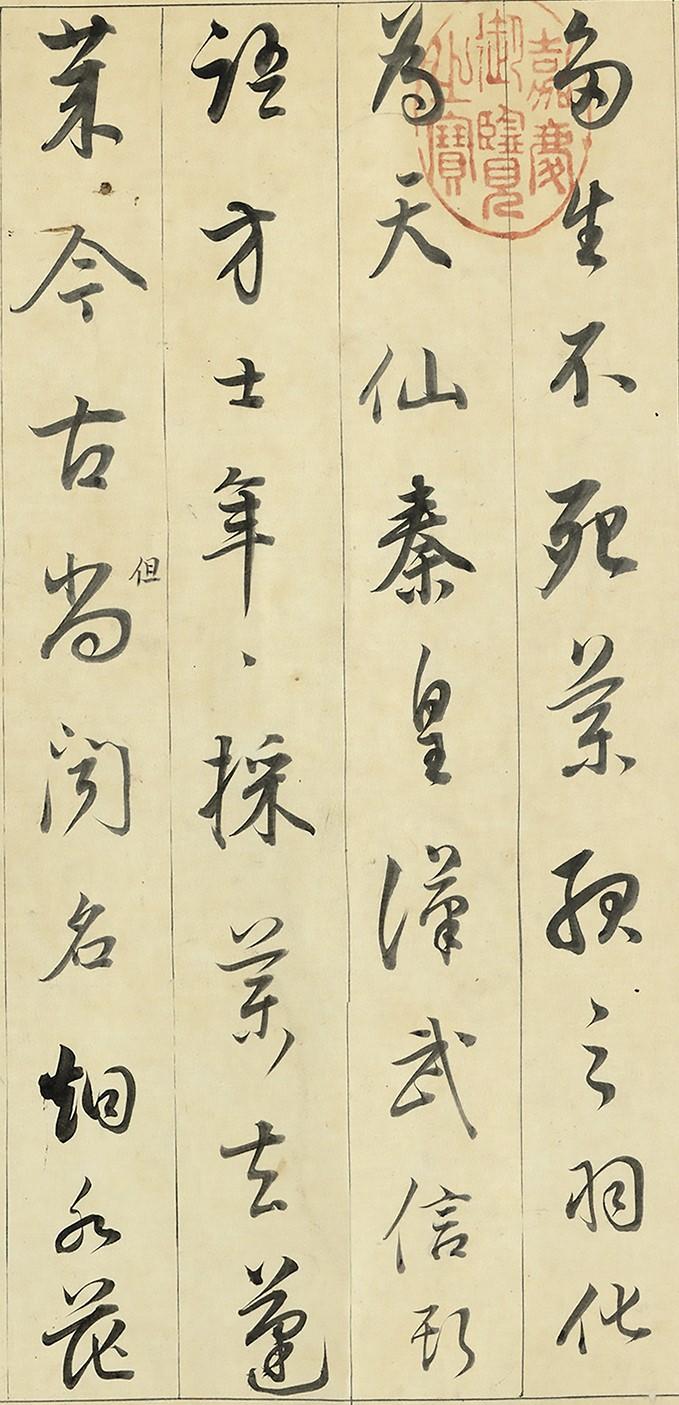 多生不死藥服之羽化
為天仙秦皇漢武信此
語方士年〻採藥去蓬
萊今古尚聞名烟水茫
但
嘉慶御覽之寶